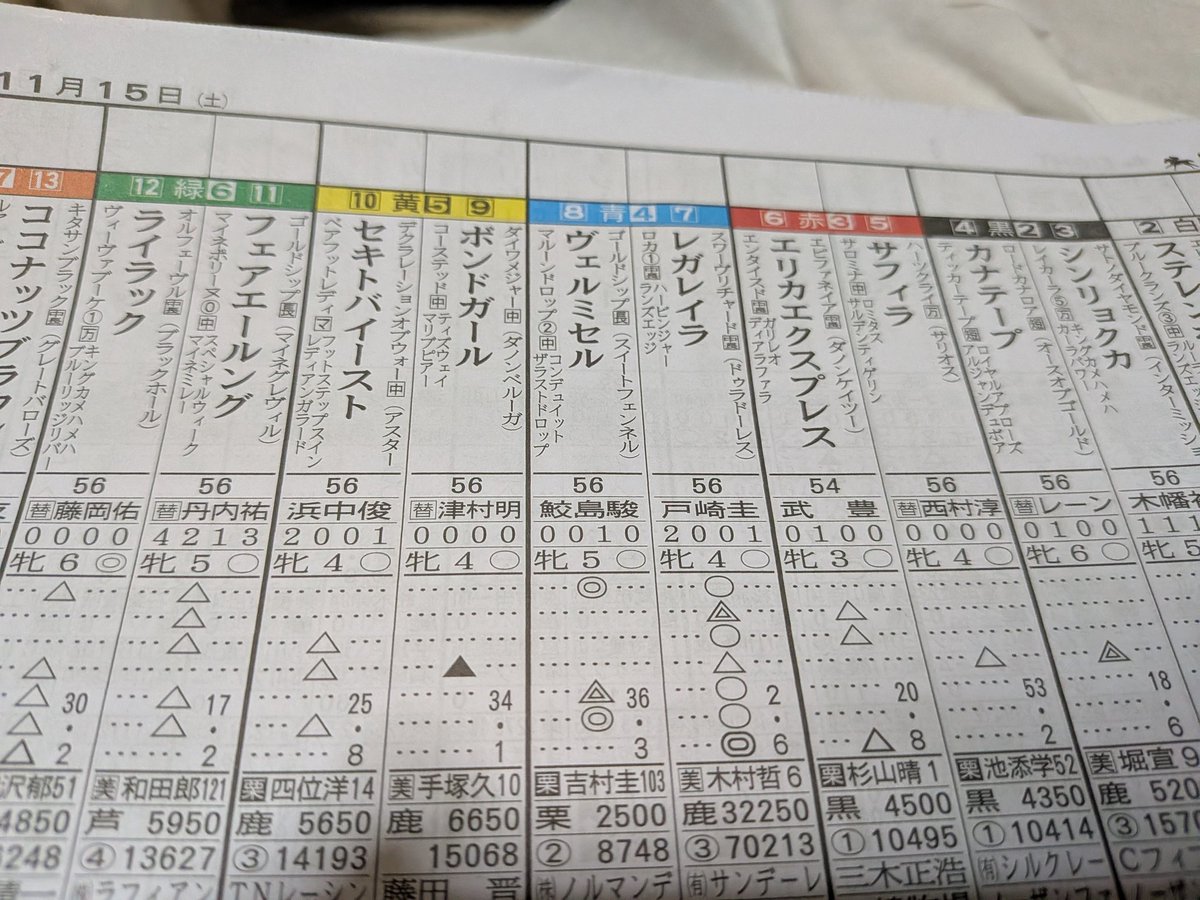 11月15日(土)
7 13 12 緑6 11 10 黄5 9 8 青4 7 6 赤3 5 4 黒2 3 2 白
ステレン
サトノダイヤモンド
シンリョクカ
(インターミッショ
ロードカナロア
カナテープ
ティッカーテープ
ロイヤルアプローズ
(オースオブゴールド)
ハーツクライ
サフィラ
サロミナ
ロミタス
サルデンティゲリン
(サリオス)
エピファネイア
エリカエクスプレス
エンタイスド
ガリレオ
(ダノンケイツー)
スワーヴリチャード
レガレイラ
ロカ①
ハービンジャー
ランズエッジ
(ドゥラドーレス)
ゴールドシップ
ヴェルミセル
マルーンドロップ②
コンデュイット
ザラストドロップ
(スイートフェンネル)
ダイワメジャー
ボンドガール
コーステッド
ティズウェイ
マリブピアー
(ダノンベルーガ)
デクラレーションオブウォー
セキトバイースト
ベアフットレディ
フットステップスイン
レディアンガラード
(アスター
ゴールドシップ
フェアエールング
マイネポリーヌ⓪
スペシャルウィーク
マイネミレー
(マイネグレヴィル)
オルフェーヴル
ライラック
ヴィーヴァブーケ①
キングカメハメハ
ブルーリッジリバー
(ブラックホール)
キタサンブラック
ココナッツブラウン
(グレートバローズ)
56 56 56 56 56 56 54 56 56 56
替藤岡佑 替丹内祐 浜中俊 替津村明 鮫島駿 戸崎圭 武豊 替西村淳 替レーン 木幡
0000 4213 2001 0000 0010 2001 0100 0000 0100 111
牝6◎ 牝5○ 牝4○ 牝4○ 牝5○ 牝4○ 牝3○ 牝4○ 牝6○ 牝5
△ △ ◎ ○
△ △
△ △ ○ △
△ △ ▲ △ △
△ 30 △ 17 25 34 36 ○ 2 20 53 18
△ △ ◎ ○
△ 2 2 8 1 3 ◎ 6 △ 8 2 6
沢郁51 美和田郎121 栗四位洋14 美手塚久10 栗吉村圭103 美木村哲6 栗杉山晴1 栗池添学52 美堀宣9
4850 芦5950 鹿5650 鹿6650 栗2500 鹿32250 黒4500 黒4350 鹿520
6248 ④13627 ③14193 15068 ②8748 ③70213 ①10495 ①10414 ③1570
㈱ラフィアン TNレーシン 藤田晋 ㈱ノルマンデ ㈲サンデーレ 三木正浩 ㈲シルクレー Cフィ